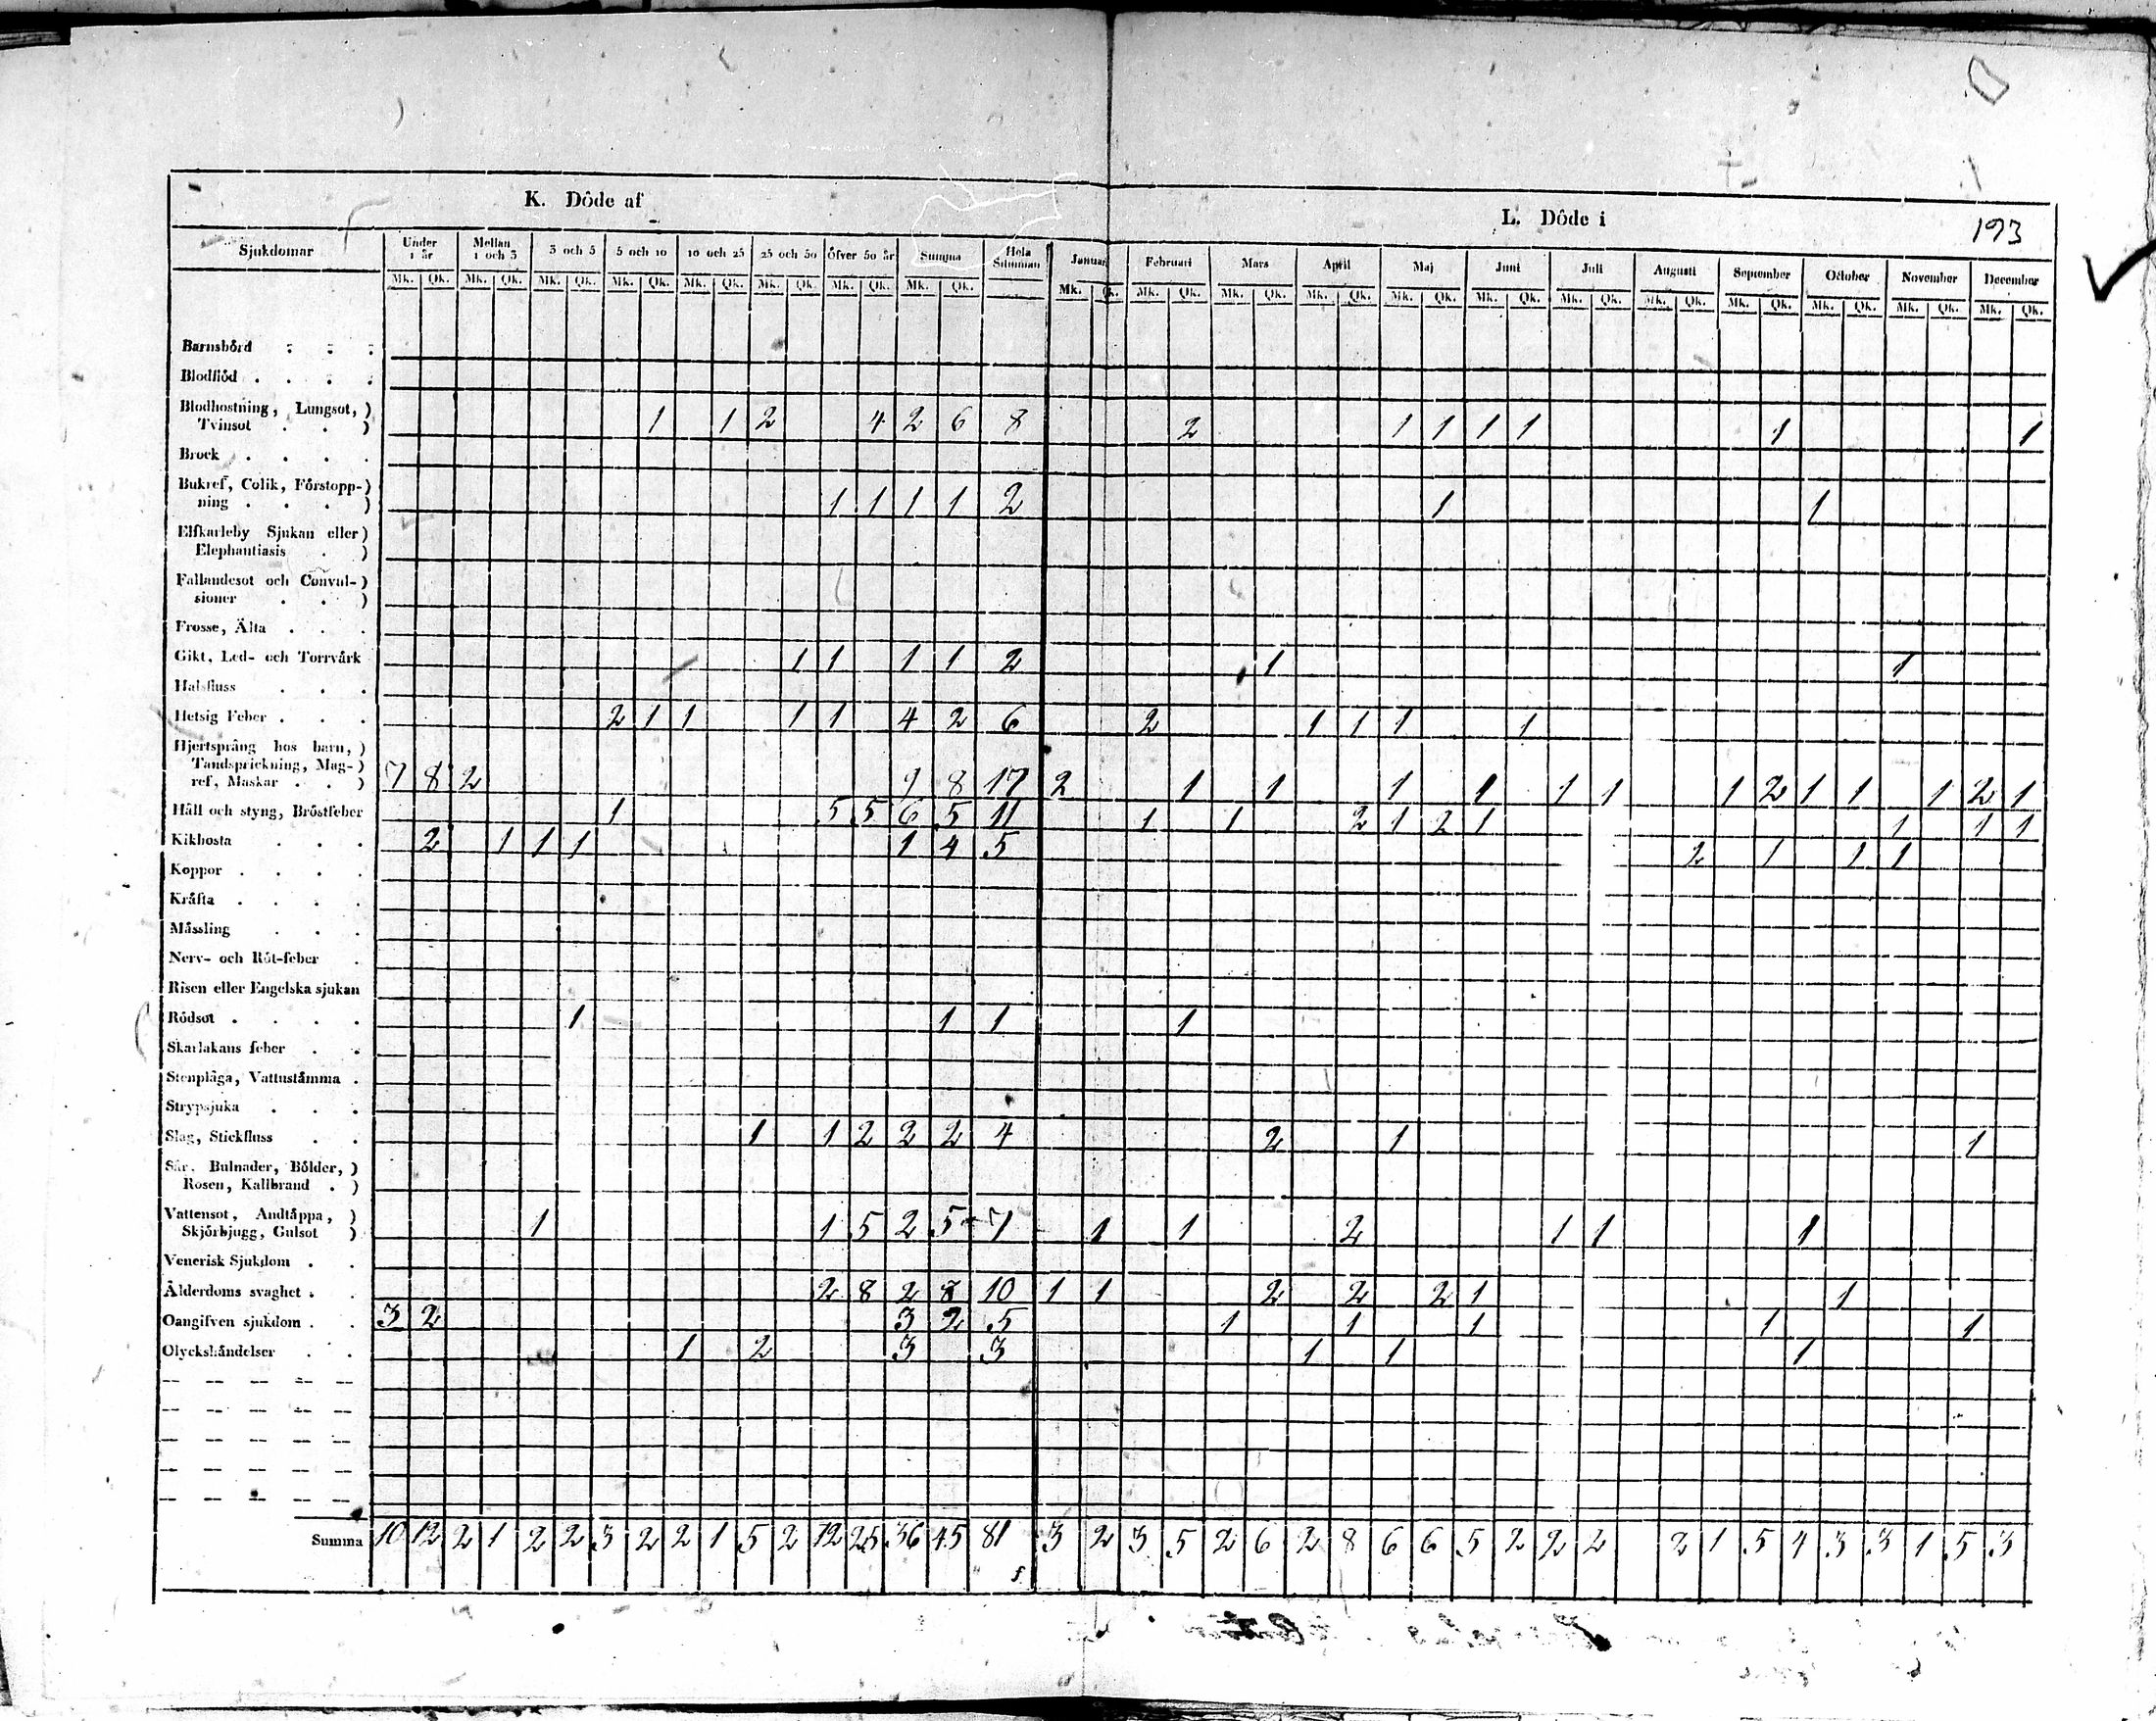 K. Döde af
L. Döde i
193
Sjukdomar Under 1 år Mellan 1 och 3 3 och 5 5 och 10 10 och 25 25 och 50 Öfver 50 år Summa Hela Summan Januari Februari Mars April Maj Juni Juli Augusti September October November December
Mk. Qk. Mk. Qk. Mk. Qk. Mk. Qk. Mk. Qk. Mk. Qk. Mk. Qk. Mk. Qk. Mk. Qk. Mk. Qk. Mk. Qk. Mk. Qk. Mk. Qk. Mk. Qk. Mk. Qk. Mk. Qk. Mk. Qk. Mk. Qk. Mk. Qk. Mk. Qk.
Barnsbörd
Blodflöd
Blodhostning, Lungsot,
Tvinsot 1 1 2 4 2 6 8 2 1 1 1 1 1 1
Brock
Bukref, Colik, Förstopp-
ning 1 1 1 1 2 1 1
Elfkarleby Sjukan eller
Elephantiasis
Fallandesot och Convul-
sioner
Frosse, Älta
Gikt, Led- och Torrvärk 1 1 1 1 2 1 1
Halsfluss
Hetsig Feber 2 1 1 1 1 4 2 6 2 1 1 1 1
Hjertsprång hos barn,
Tandsprickning, Mag-
ref, Maskar 7 8 2 9 8 17 2 1 1 1 1 1 1 1 2 1 1 1 2 1
Håll och styng, Bröstfeber 1 5 5 6 5 11 1 1 2 1 2 1 1 1 1
Kikhosta 2 1 1 1 1 4 5 2 1 1 1
Koppor
Kräfta
Mässling
Nerv- och Röt-feber
Risen eller Engelska sjukan
Rödsot 1 1 1 1
Skarlakans feber
Stenplåga, Vattustämma
Strypsjuka
Slag, Stickfluss 1 1 2 2 2 4 2 1 1
Sår, Bulnader, Bölder,
Rosen, Kallbrand
Vattensot, Andtäppa,
Skjörbjugg, Gulsot 1 1 5 2 5 7 1 1 2 1 1 1
Venerisk Sjukdom
Ålderdoms svaghet 2 8 2 8 10 1 1 2 2 2 1 1
Oangifven sjukdom 3 2 3 2 5 1 1 1 1 1
Olyckshändelser 1 2 3 3 1 1 1
Summa 10 12 2 1 2 2 3 2 2 1 5 2 12 25 36 45 81 3 2 3 5 2 6 2 8 6 6 5 2 2 2 2 1 5 4 3 3 1 5 3